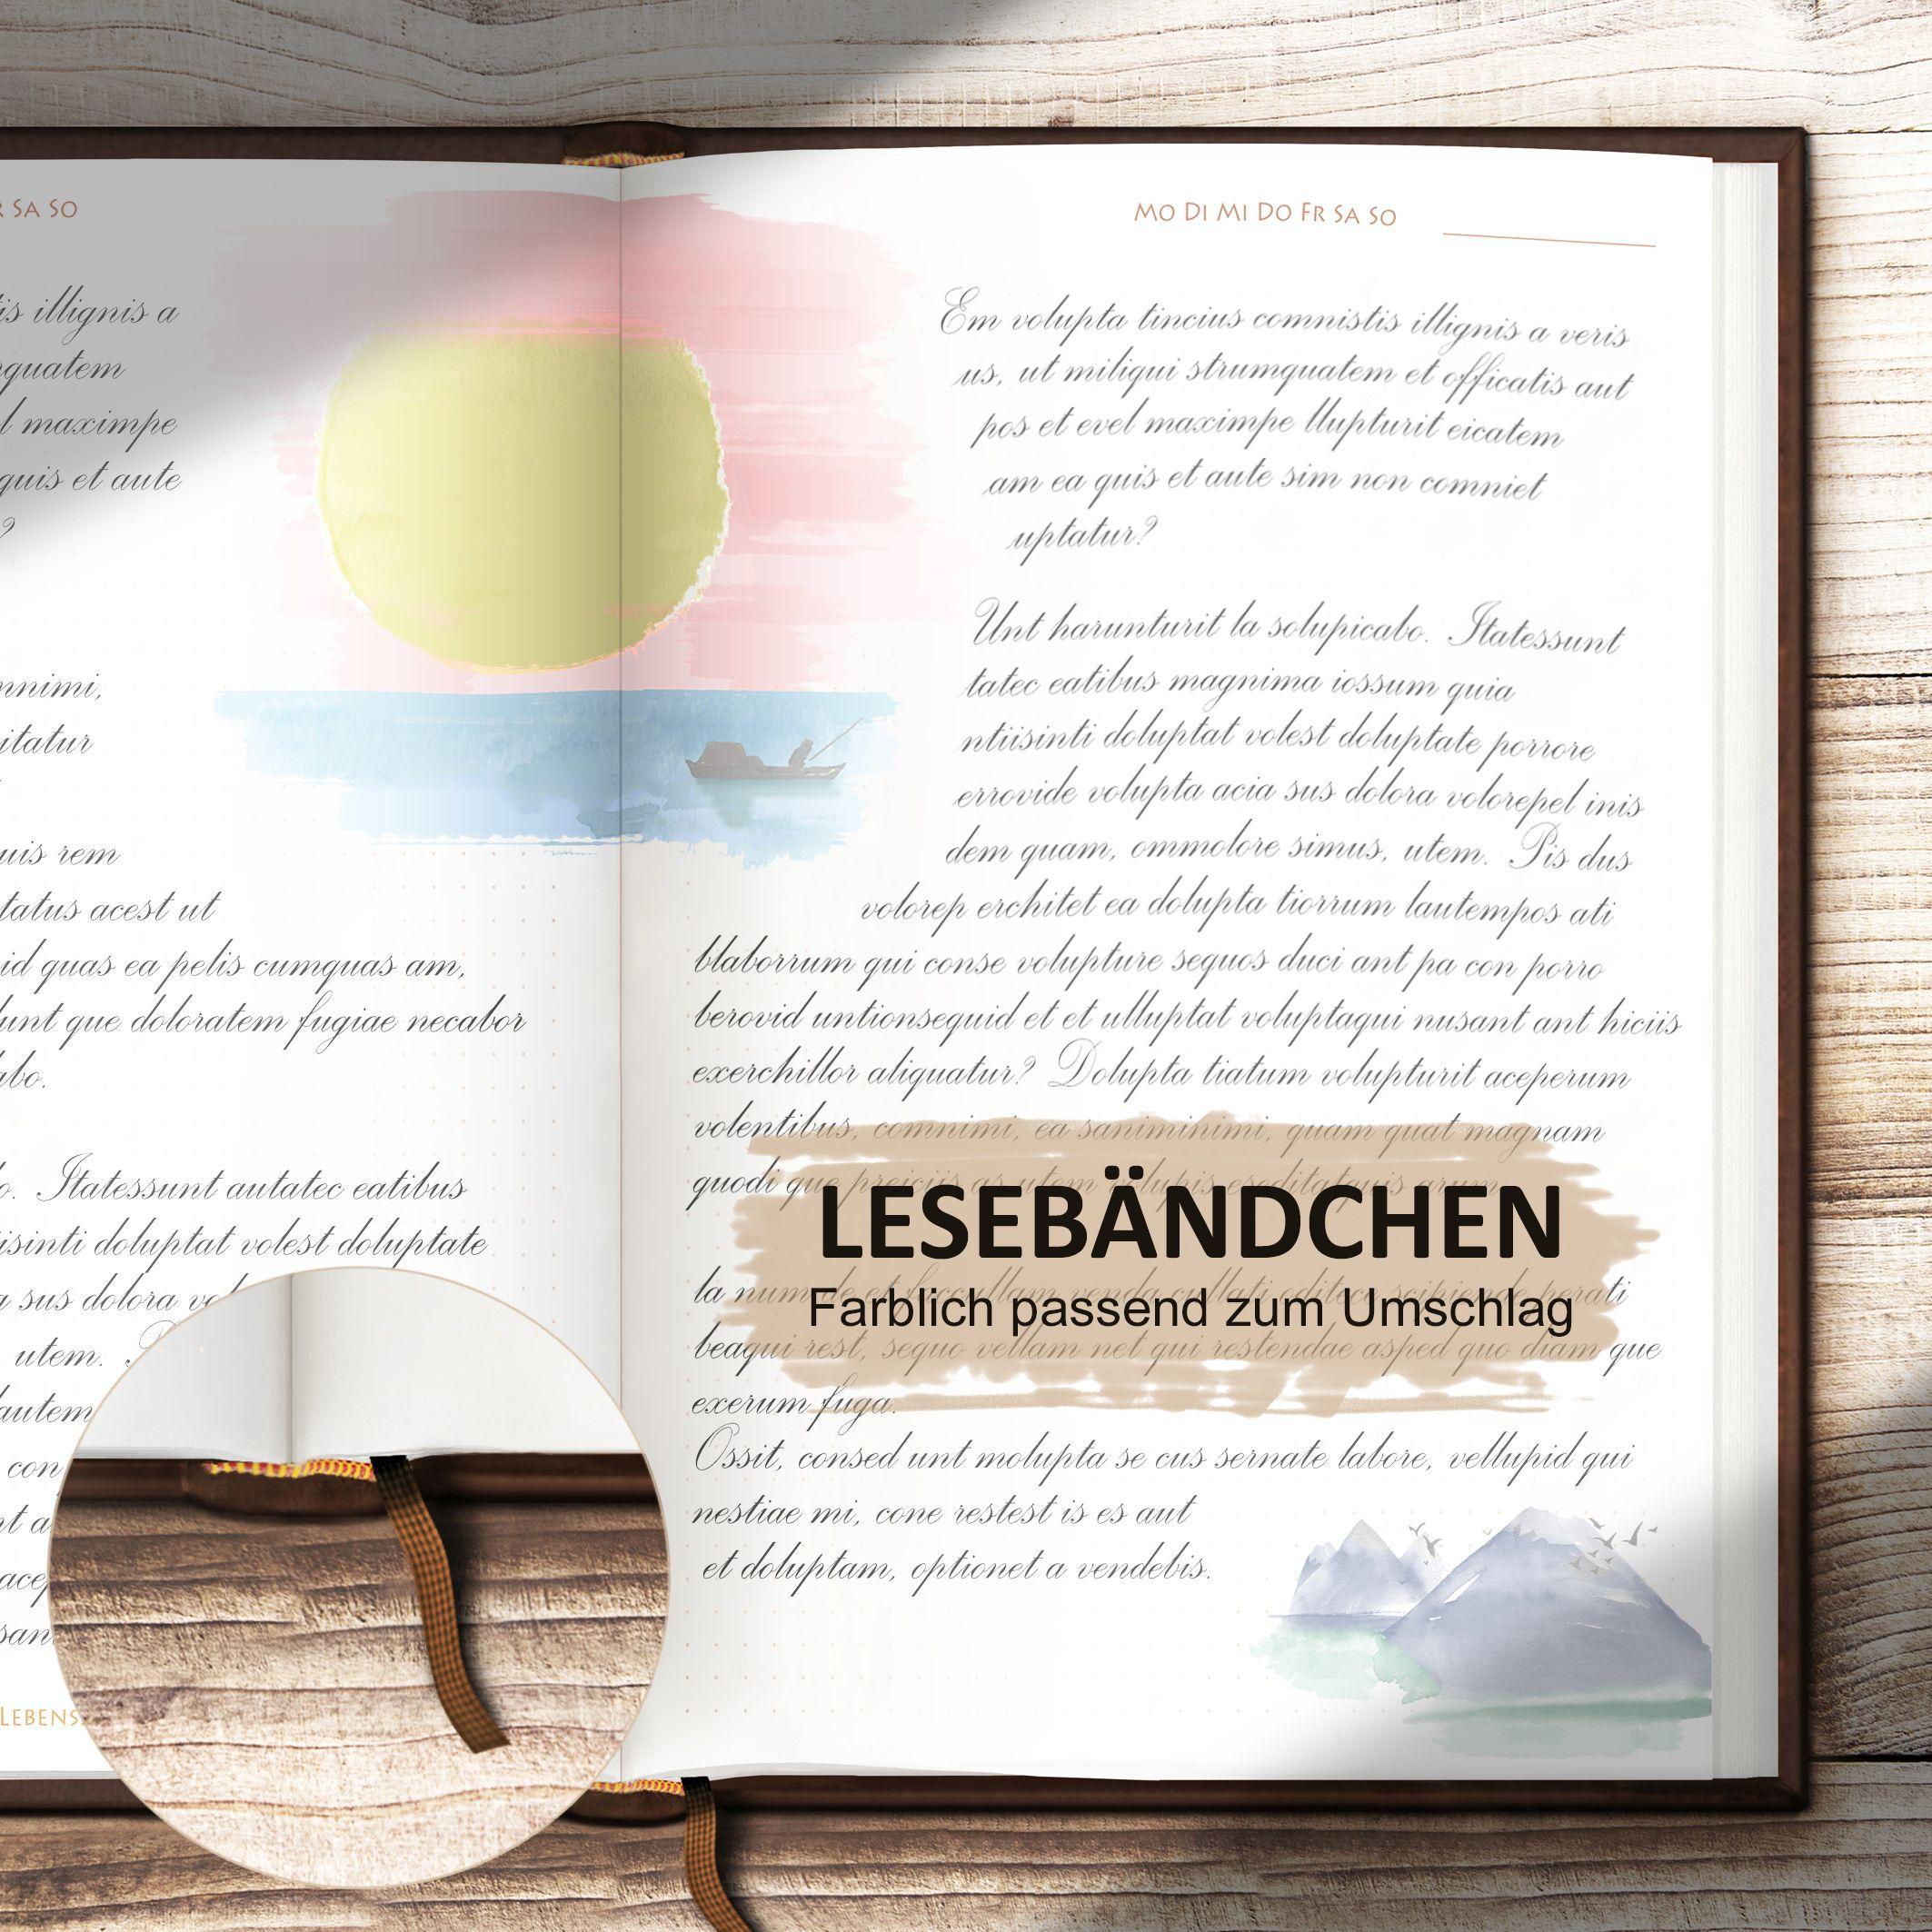 R SA SO
is illignis a
quatem
l maximpe
quis et aute
?
nnimi,
itatur
uis rem
tatus acest ut
id quas ea pelis cumquas am,
unt que doloratem fugiae necabor
abo.
o. Itatessunt autatec eatibus
isinti doluptat volest doluptate
a sus dolora vol
utem. P
autem
con
nt a
acep
san
LEBENS
MO DI MI DO FR SA SO
Em volupta tincius comnistis illignis a veris
us, ut miliqui strumquatem et officatis aut
pos et evel maximpe llupturit eicatem
am ea quis et aute sim non comniet
uptatur?
Unt harunturit la solupicabo. Itatessunt
tatec eatibus magnima iossum quia
ntiisinti doluptat volest doluptate porrore
errovide volupta acia sus dolora volorepel inis
dem quam, ommolore simus, utem. Pis dus
volorep erchitet ea dolupta tiorrum lautempos ati
blaborrum qui conse volupture sequos duci ant pa con porro
berovid untionsequid et et ulluptat voluptaqui nusant ant hiciis
exerchillor aliquatur? Dolupta tiatum volupturit aceperum
volentibus, comnimi, ea saniminimi, quam quat magnam
quodi que preiciis as utem volupis eseditatquis arum
LESEBÄNDCHEN
la num
Farblich passend zum Umschlag
beaqui rest, sequo vellam net qui restendae asped quo diam que
exerum fuga.
Ossit, consed unt molupta se cus sernate labore, vellupid qui
nestiae mi, cone restest is es aut
et doluptam, optionet a vendebis.